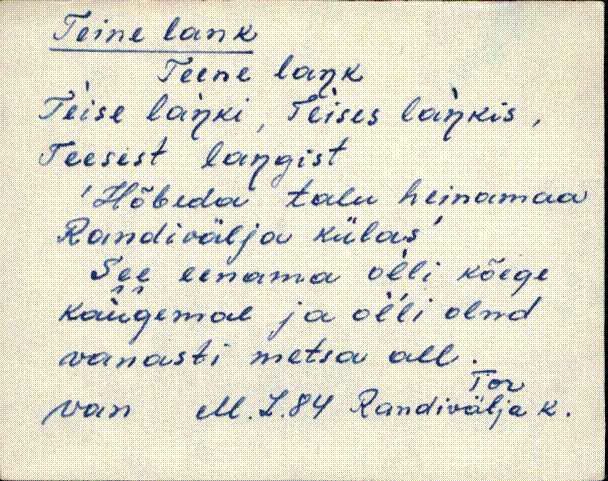 Teine lank
Teene laŋk
Tèise làŋki, Tèises làŋkis,
Teesest laŋgist
'Hõbeda talu heinamaa
Randivälja külas'
See eenama òlli kõege
kaùgemal ja òlli olnd
vanasti metsa all.
Tor
van M.I.84 Randivälja k.